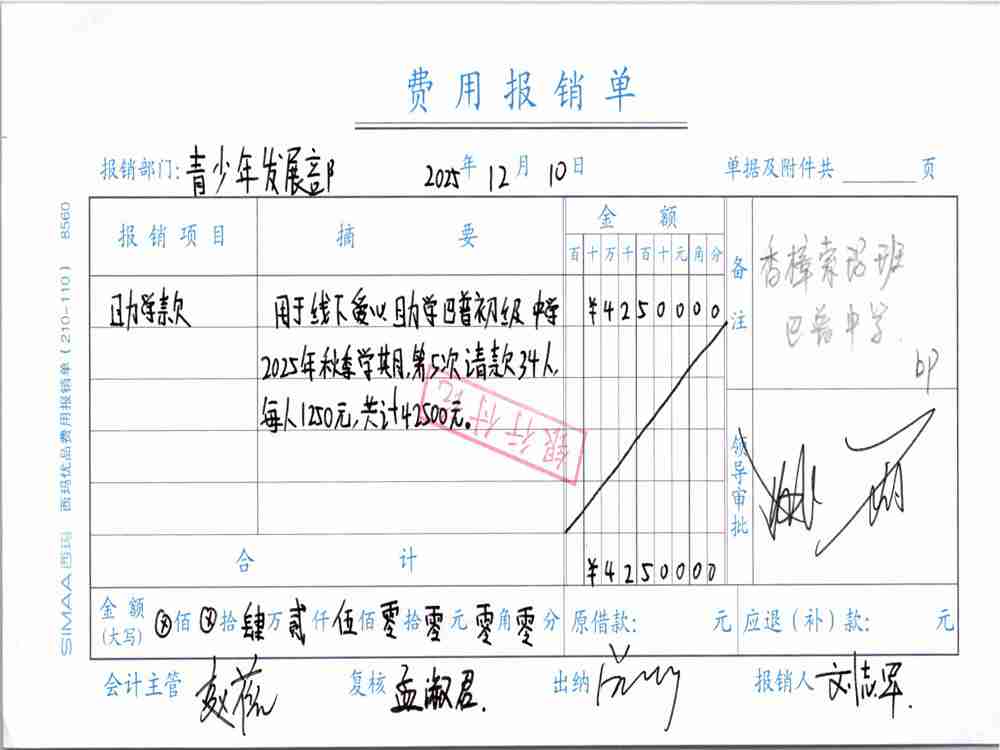 费用报销单
报销部门: 青少年发展部 2025年 12月 10日 单据及附件共 页
报销项目 摘 要 金 额 备注
百十万千百十元角分
助学款 用于线下爱心助学巴普初级中学 ¥4250000
2025年秋季学期,第5次请款34人,
每人1250元,共计42500元。
银行付讫
香樟索玛班
巴普中学.
领导审批
合 计 ¥4250000
金额(大写) ⊗佰⊗拾肆万贰仟伍佰零拾零元零角零分 原借款: 元 应退(补)款: 元
会计主管 复核 孟淑君. 出纳 报销人 刘志军.
SIMAA 西玛 西玛优品费用报销单(210-110) 8560